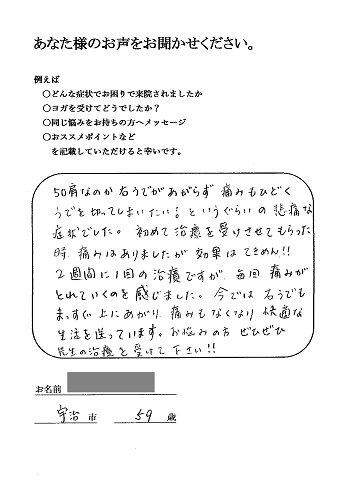 あなた様のお声をお聞かせください。
例えば
○どんな症状でお困りで来院されましたか
○ヨガを受けてどうでしたか？
○同じ悩みをお持ちの方へメッセージ
○おススメポイントなど
を記載していただけると幸いです。
50肩なのか右うでがあがらず 痛みもひどく
うでを切ってしまいたい！というぐらいの悲痛な
症状でした。初めて治療を受けさせてもらった
時、痛みはありましたが効果はてきめん!!
2週間に1回の治療ですが、毎回痛みが
とれていくのを感じました。今では右うでも
まっすぐ上にあがり、痛みもなくなり快適な
生活を送っています。お悩みの方 ぜひぜひ
先生の治療を受けて下さい!!
お名前
宇治 市 59 歳